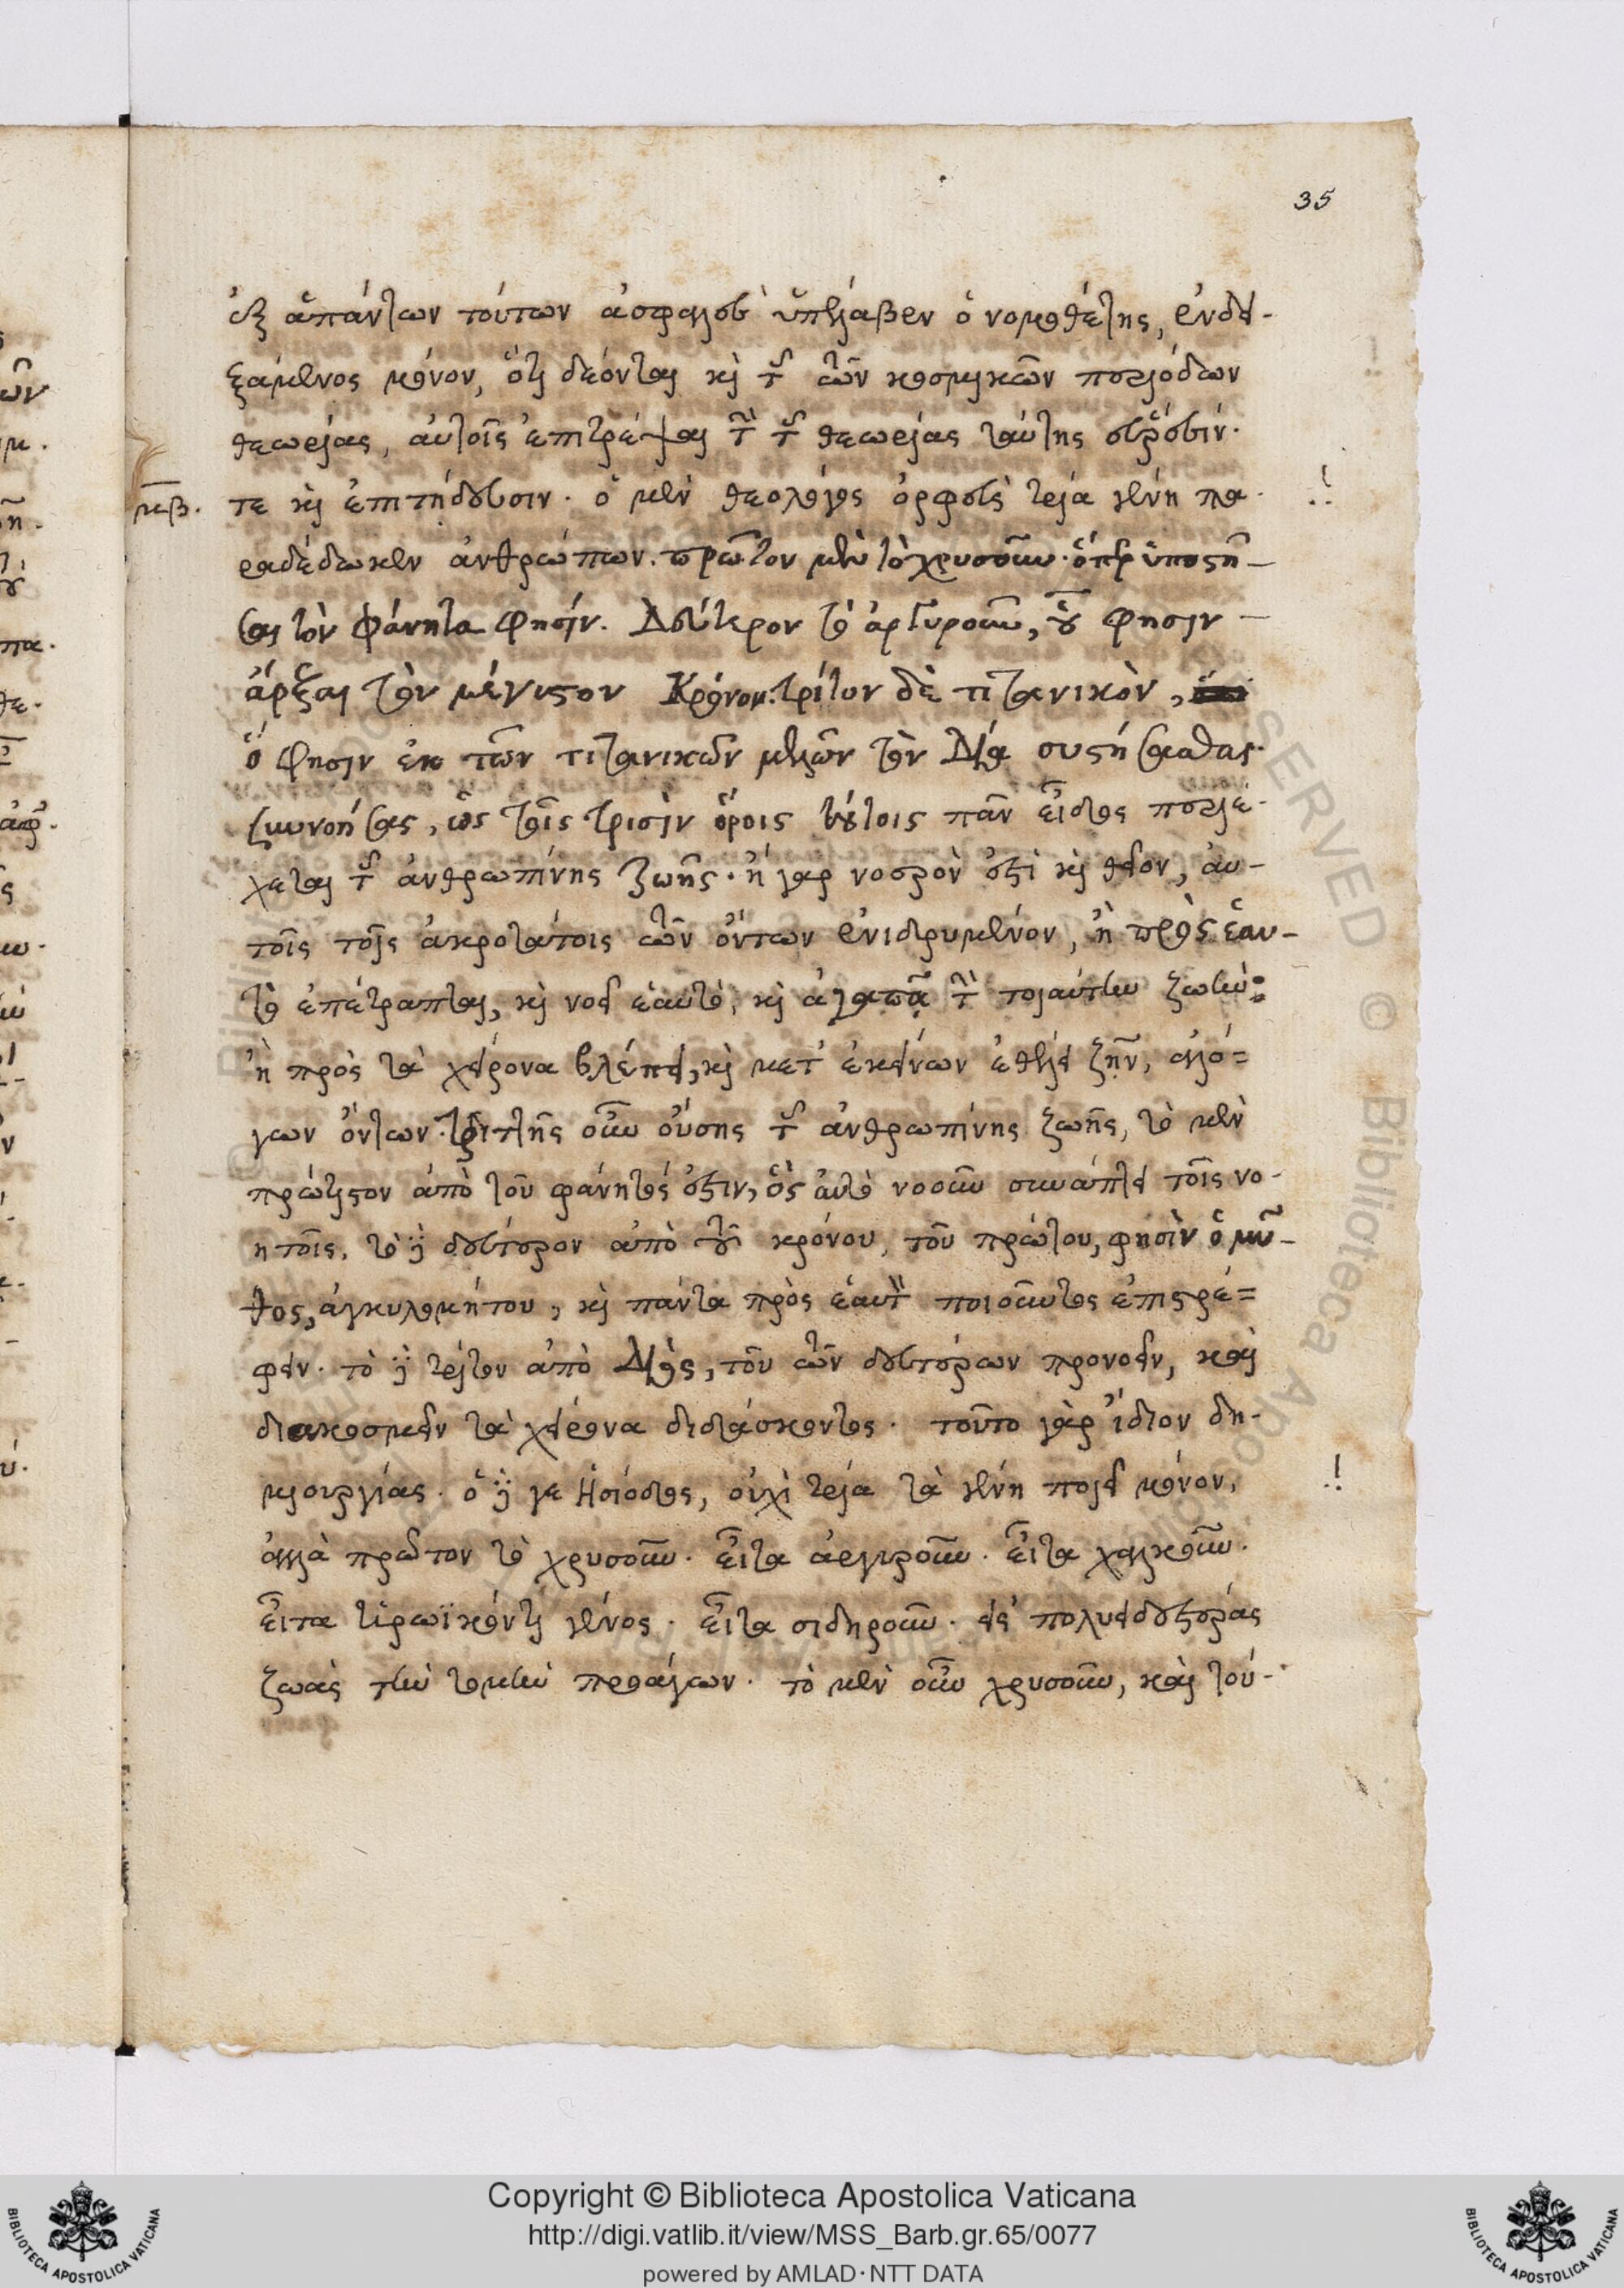 35
ἐξ ἁπάντων τούτων ἀσφαλεῖ ὑπέλαβεν ὁ νομοθέτης, ἐνδει-
ξάμενος μόνον, ὅτι δέονται κὶ τῆς τῶν κοσμικῶν περιόδων
θεωρίας, αὐτοῖς ἐπιτρέψαι τὴν τῆς θεωρίας ταύτης εὕρεσίν.
μβ. τε κὶ ἐπιτήδευσιν. ὁ μὲν θεολόγος ὀρφεὺς τρία γένη πα-
ραδέδωκεν ἀνθρώπων. πρῶτον μὲν τὸ χρυσοῦν. ὅπερ ὑποστῆ-
σαι τὸν Φάνητα φησίν. Δεύτερον τὸ ἀργυροῦν, οὗ φησιν
ἄρξαι τὸν μέγιστον Κρόνον. τρίτον δὲ τιτανικὸν,
ὅ φησιν ἐκ τῶν τιτανικῶν μελῶν τὸν Δία συστήσασθαι.
ξυννοήσας, ὡς τοῖς τρισὶν ὅροις τούτοις πᾶν εἶδος περιέ-
χεται τῆς ἀνθρωπίνης ζωῆς. ἢ γὰρ νοερὸν ἐστὶ κὶ θεῖον, αὐ-
τοῖς τοῖς ἀκροτάτοις τῶν ὄντων ἐνιδρυμένον, ἢ πρὸς ἑαυ-
τὸ ἐπέτραπται, κὶ νοεῖ ἑαυτὸ, κὶ ἀγαπᾷ τὴν τοιαύτην ζωήν:
ἢ πρὸς τὰ χείρονα βλέπει, κὶ μετ' ἐκείνων ἐθέλει ζῆν, ἀλό-
γων ὄντων. τριττῆς οὖν οὔσης τῆς ἀνθρωπίνης ζωῆς, τὸ μὲν
πρώτιστον ἀπὸ τοῦ φάνητός ἐστιν, ὃς αὐτὸ νοοῦν συνάπτει τοῖς νο-
ητοῖς. τὸ δὲ δεύτερον ἀπὸ τοῦ κρόνου, τοῦ πρώτου, φησὶν ὁ μῦ-
θος, ἀγκυλομήτου, κὶ πάντα πρὸς ἑαυτὸν ποιοῦντος ἐπιστρέ-
φειν. τὸ δὲ τρίτον ἀπὸ Διὸς, τοῦ τῶν δευτέρων προνοεῖν, καὶ
διακοσμεῖν τὰ χείρονα διδάσκοντος. τοῦτο γὰρ ἴδιον δη-
μιουργίας. ὁ δὲ γε Ἡσίοδος, οὐχὶ τρία τὰ γένη ποιεῖ μόνον,
ἀλλὰ πρῶτον τὸ χρυσοῦν. εἶτα ἀργυροῦν. εἶτα χαλκοῦν.
εἶτα τὶ ἡρωϊκόν τι γένος. εἶτα σιδηροῦν. εἰς πολυειδεστέρας
ζωὰς τὴν τομὴν προάγων. τὸ μὲν οὖν χρυσοῦν, καὶ τού-
Copyright © Biblioteca Apostolica Vaticana
http://digi.vatlib.it/view/MSS_Barb.gr.65/0077
powered by AMLAD·NTT DATA